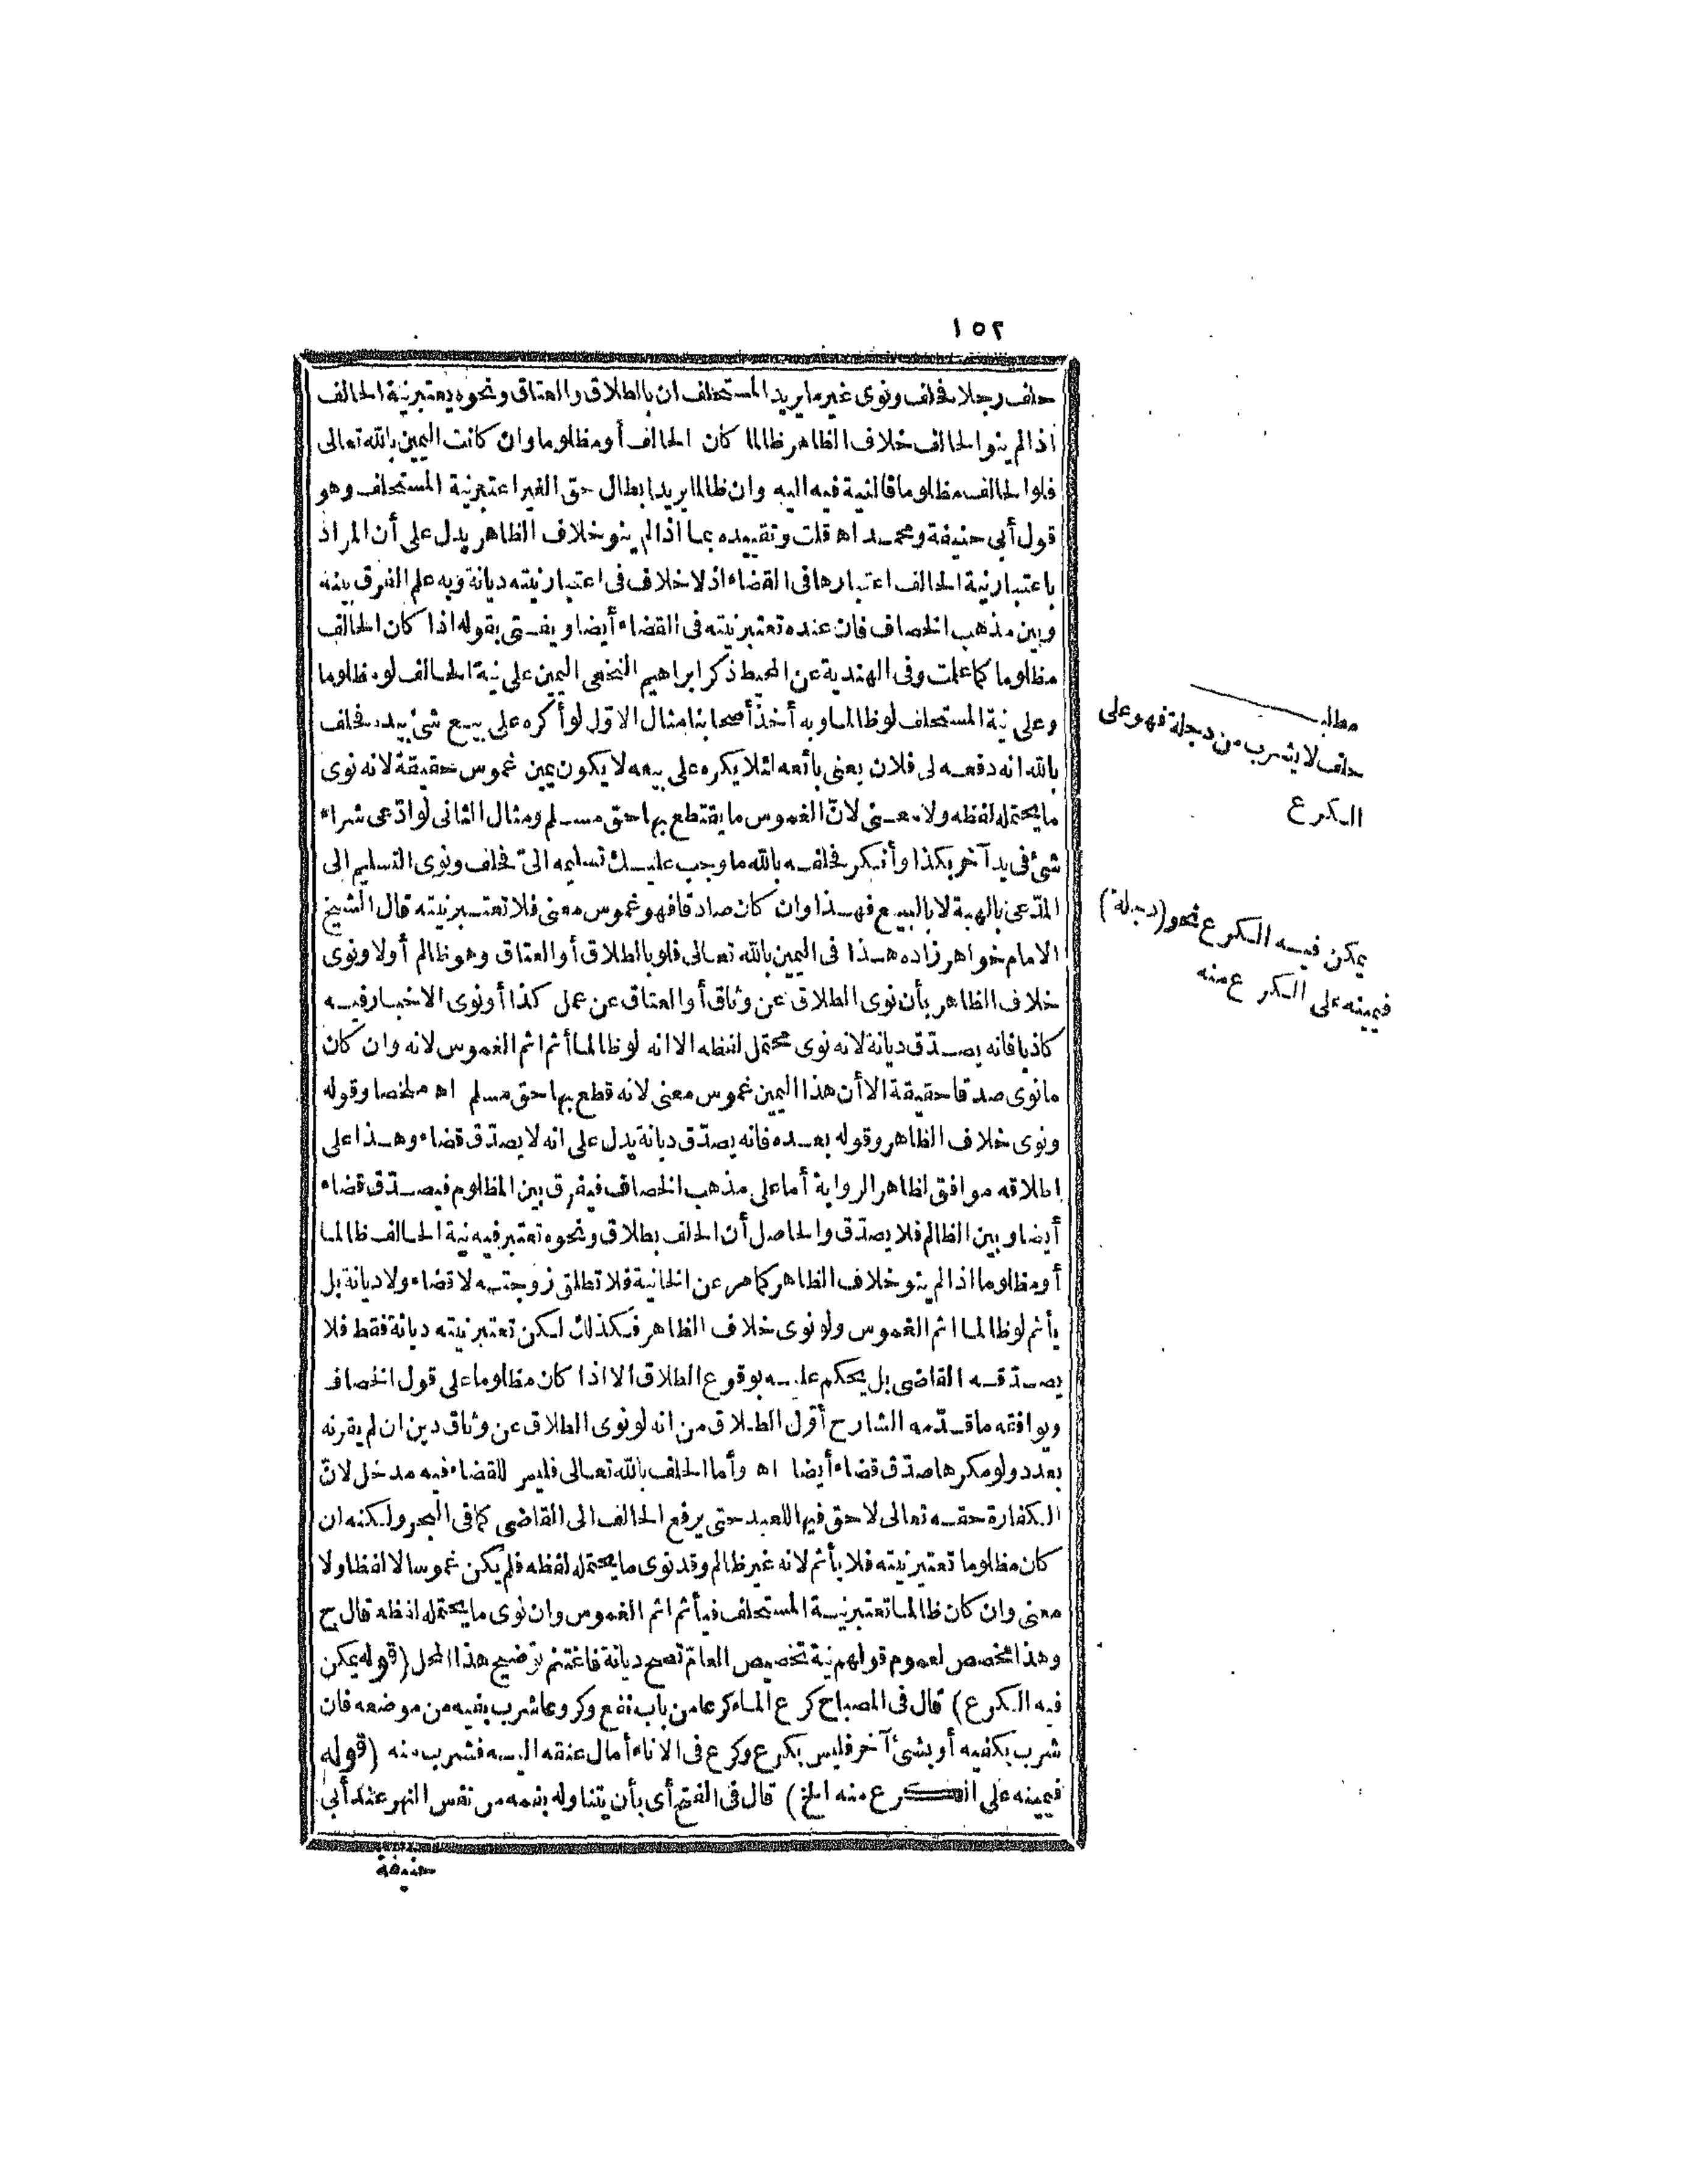 ١٥٢
حلف رجلا فحلف ونوى غير ما يريد المستحلف ان بالطلاق والعتاق ونحوه يعتبر نية الحالف
اذا لم ينو الحالف خلاف الظاهر ظالما كان الحالف أو مظلوما وان كانت اليمين بالله تعالى
فلو الحالف مظلوما فالنية فيه اليه وان ظالما يريد ابطال حق الغير اعتبر نية المستحلف وهو
قول أبي حنيفة ومحمد اه قلت وتقييده بما اذا لم ينو خلاف الظاهر يدل على أن المراد
باعتبار نية الحالف اعتبارها في القضاء اذ لا خلاف في اعتبار نيته ديانة وبه علم الفرق بينه
وبين مذهب الخصاف فان عنده تعتبر نيته في القضاء أيضا ويفتى بقوله اذا كان الحالف
مظلوما كما علمت وفي الهندية عن المحيط ذكر ابراهيم النخعي اليمين على نية الحالف لو مظلوما
وعلى نية المستحلف لو ظالما وبه أخذ أصحابنا مثال الاول لو أكره على بيع شئ بيده فحلف
بالله انه دفعه لى فلان يعنى بائعه لئلا يكره على بيعه لا يكون يمين غموس حقيقة لانه نوى
ما يحتمله لفظه ولا معنى لانّ الغموس ما يقتطع بها حق مسلم ومثال الثانى لو ادّعى شراء
شئ فى يد آخر بكذا وأنكر فحلفه بالله ما وجب عليك تسليمه الىّ فحلف ونوى التسليم الى
المدّعى بالهبة لا بالبيع فهذا وان كان صادقا فهو غموس معنى فلا تعتبر نيته قال الشيخ
الامام خواهر زاده هذا فى اليمين بالله تعالى فلو بالطلاق أو العتاق وهو ظالم أو لا ونوى
خلاف الظاهر بأن نوى الطلاق عن وثاق أو العتاق عن عمل كذا أو نوى الاخبار فيه
كاذبا فانه يصدّق ديانة لانه نوى محتمل لفظه الا انه لو ظالما أثم اثم الغموس لانه وان كان
ما نوى صدقا حقيقة الا أن هذا اليمين غموس معنى لانه قطع بها حق مسلم اه ملخصا وقوله
ونوى خلاف الظاهر وقوله بعده فانه يصدّق ديانة يدل على انه لا يصدّق قضاء وهذا على
اطلاقه موافق لظاهر الرواية أما على مذهب الخصاف فيفرق بين المظلوم فيصدّق قضاء
أيضا وبين الظالم فلا يصدّق والحاصل أن الحلف بطلاق ونحوه تعتبر فيه نية الحالف ظالما
أو مظلوما اذا لم ينو خلاف الظاهر كما مر عن الخانية فلا تطلق زوجته لا قضاء ولا ديانة بل
يأثم لو ظالما اثم الغموس ولو نوى خلاف الظاهر فكذلك لكن تعتبر نيته ديانة فقط فلا
يصدّقه القاضى بل يحكم عليه بوقوع الطلاق الا اذا كان مظلوما على قول الخصاف
ويوافقه ما قدّمه الشارح أوّل الطلاق من انه لو نوى الطلاق عن وثاق دين ان لم يقرنه
بعدد ولو مكرها صدّق قضاء أيضا اه وأما الحلف بالله تعالى فليس للقضاء فيه مدخل لانّ
الكفارة حقه تعالى لا حق فيها للعبد حتى يرفع الحالف الى القاضى كما فى البحر ولكنه ان
كان مظلوما تعتبر نيته فلا يأثم لانه غير ظالم وقد نوى ما يحتمله لفظه فلم يكن غموسا لا لفظا ولا
معنى وان كان ظالما تعتبر نية المستحلف فيأثم اثم الغموس وان نوى ما يحتمله لفظه قال ح
وهذا مخصص لعموم قولهم نية تخصيص العامّ تصح ديانة فاغتنم توضيح هذا المحل (قوله يمكن
فيه الكرع) قال فى المصباح كرع الماء كرعا من باب نفع وكروعا شرب بفيه من موضعه فان
شرب بكفيه أو بشئ آخر فليس بكرع وكرع فى الاناء أمال عنقه اليه فشرب منه (قوله
فيمينه على الكرع منه الخ) قال فى الفتح أى بأن يتناوله بفمه من نفس النهر عند أبى
حنيفة
مطلب
حلف لا يشرب من دجلة فهو على
الكرع
يمكن فيه الكرع نحو (دجلة)
فيمينه على الكرع منه